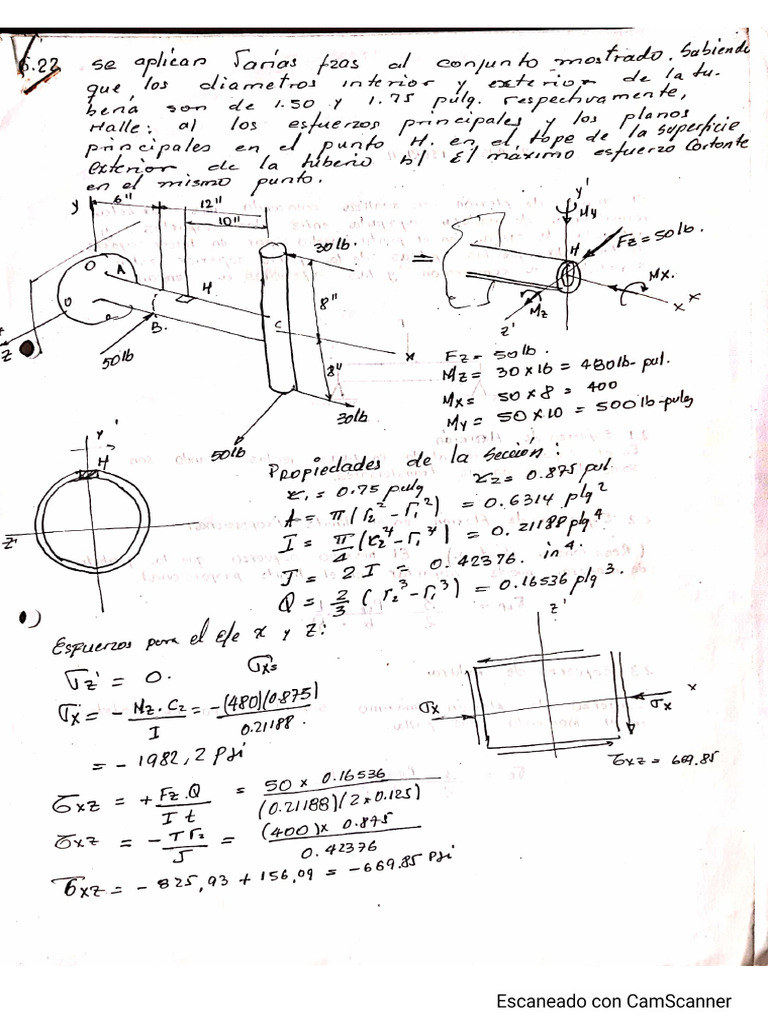 6.22 se aplican varias fzas al conjunto mostrado. Sabiendo
que, los diametros interior y exterior de la tu-
beria son de 1.50 y 1.75 pulg. respectivamente,
Halle: a) los esfuerzos principales y los planos
principales en el punto H. en el tope de la superficie
exterior de la tuberia b) El máximo esfuerzo Cortante
en el mismo punto.
y 6" 12"
10"
30lb.
O A H
8"
B. C
x
z
50lb
8"
30lb
50lb
=
y'
My
H
Fz = 50lb.
Mx.
x x
Mz
z'
Fz = 50lb.
Mz = 30 x 16 = 480lb-pul.
Mx = 50 x 8 = 400
My = 50 x 10 = 500lb-pulg
y'
H
z'
Propiedades de la sección:
r1 = 0.75 pulg r2 = 0.875 pul.
A = π(r2² - r1²) = 0.6314 plg²
I = π/4 (r2⁴ - r1⁴) = 0.21188 plg⁴
J = 2I = 0.42376. in⁴.
Q = 2/3 (r2³ - r1³) = 0.16536 plg³.
Esfuerzos para el eje x y z:
σz' = 0. σx=
σx' = - Mz.C2/I = -(480)(0.875)/0.21188
= - 1982,2 Psi
τxz = + Fz.Q/I t = 50 x 0.16536/(0.21188)(2x0.125)
τxz = - T r2/J = (400)x 0.875/0.42376
τxz = - 825,93 + 156,09 = -669.85 Psi
z'
σx
σx
x
τxz = 669.85
Escaneado con CamScanner